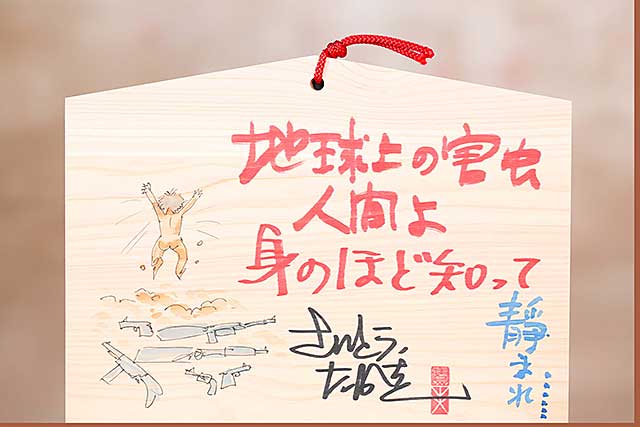 地球上の害虫
人間よ
身のほど知って
静まれ……
さいとう・
たかを